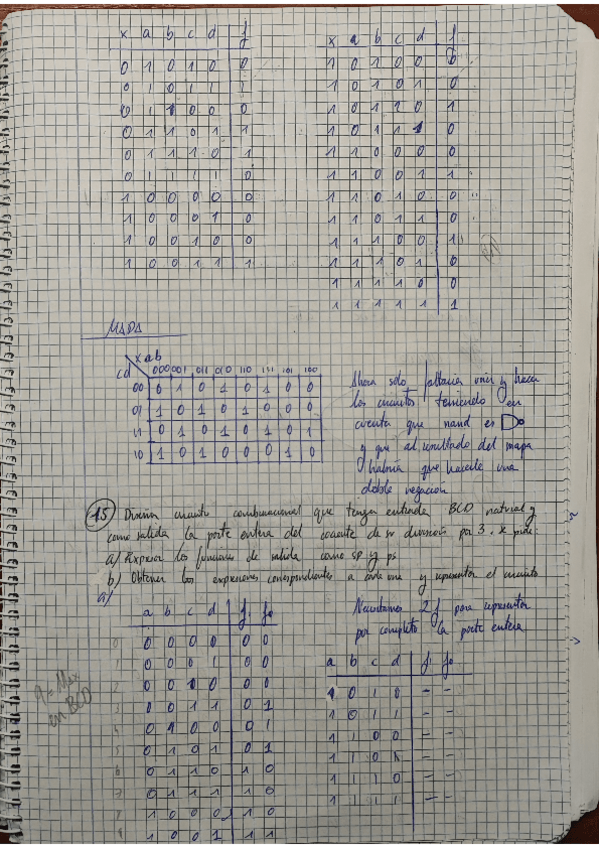 x a b c d f
0 1 0 1 0 0
0 1 0 1 1 1
0 1 1 0 0 0
0 1 1 0 1 1
0 1 1 1 0 1
0 1 1 1 1 0
1 0 0 0 0 0
1 0 0 0 1 0
1 0 0 1 0 0
1 0 0 1 1 1
x a b c d f
1 0 1 0 0 0
1 0 1 0 1 0
1 0 1 1 0 1
1 0 1 1 1 0
1 1 0 0 0 0
1 1 0 0 1 1
1 1 0 1 0 0
1 1 0 1 1 0
1 1 1 0 0 1
1 1 1 0 1 0
1 1 1 1 0 0
1 1 1 1 1 1
MAPA
x a b
cd 000 001 011 010 110 111 101 100
00 0 1 0 1 0 1 0 0
01 1 0 1 0 1 0 0 0
11 0 1 0 1 0 1 0 1
10 1 0 1 0 0 0 1 0
Ahora solo faltaría unir y hacer
los circuitos teniendo en
cuenta que nand es
y que al resultado del mapa
habría que hacerle una
doble negación
15 Diseña circuito combinacional que tenga entrada BCD natural y
como salida la parte entera del cociente de su división por 3. Se pide:
a) Expresar las funciones de salida como sp y ps
b) Obtener las expresiones correspondientes a cada una y representar el circuito
a)
Necesitamos 2 f para representar
por completo la parte entera
9 = Max
en BCD
a b c d f1 f0
0 0 0 0 0 0 0
1 0 0 0 1 0 0
2 0 0 1 0 0 0
3 0 0 1 1 0 1
4 0 1 0 0 0 1
5 0 1 0 1 0 1
6 0 1 1 0 1 0
7 0 1 1 1 1 0
8 1 0 0 0 1 0
9 1 0 0 1 1 1
a b c d f1 f0
1 0 1 0 - -
1 0 1 1 - -
1 1 0 0 - -
1 1 0 1 - -
1 1 1 0 - -
1 1 1 1 - -